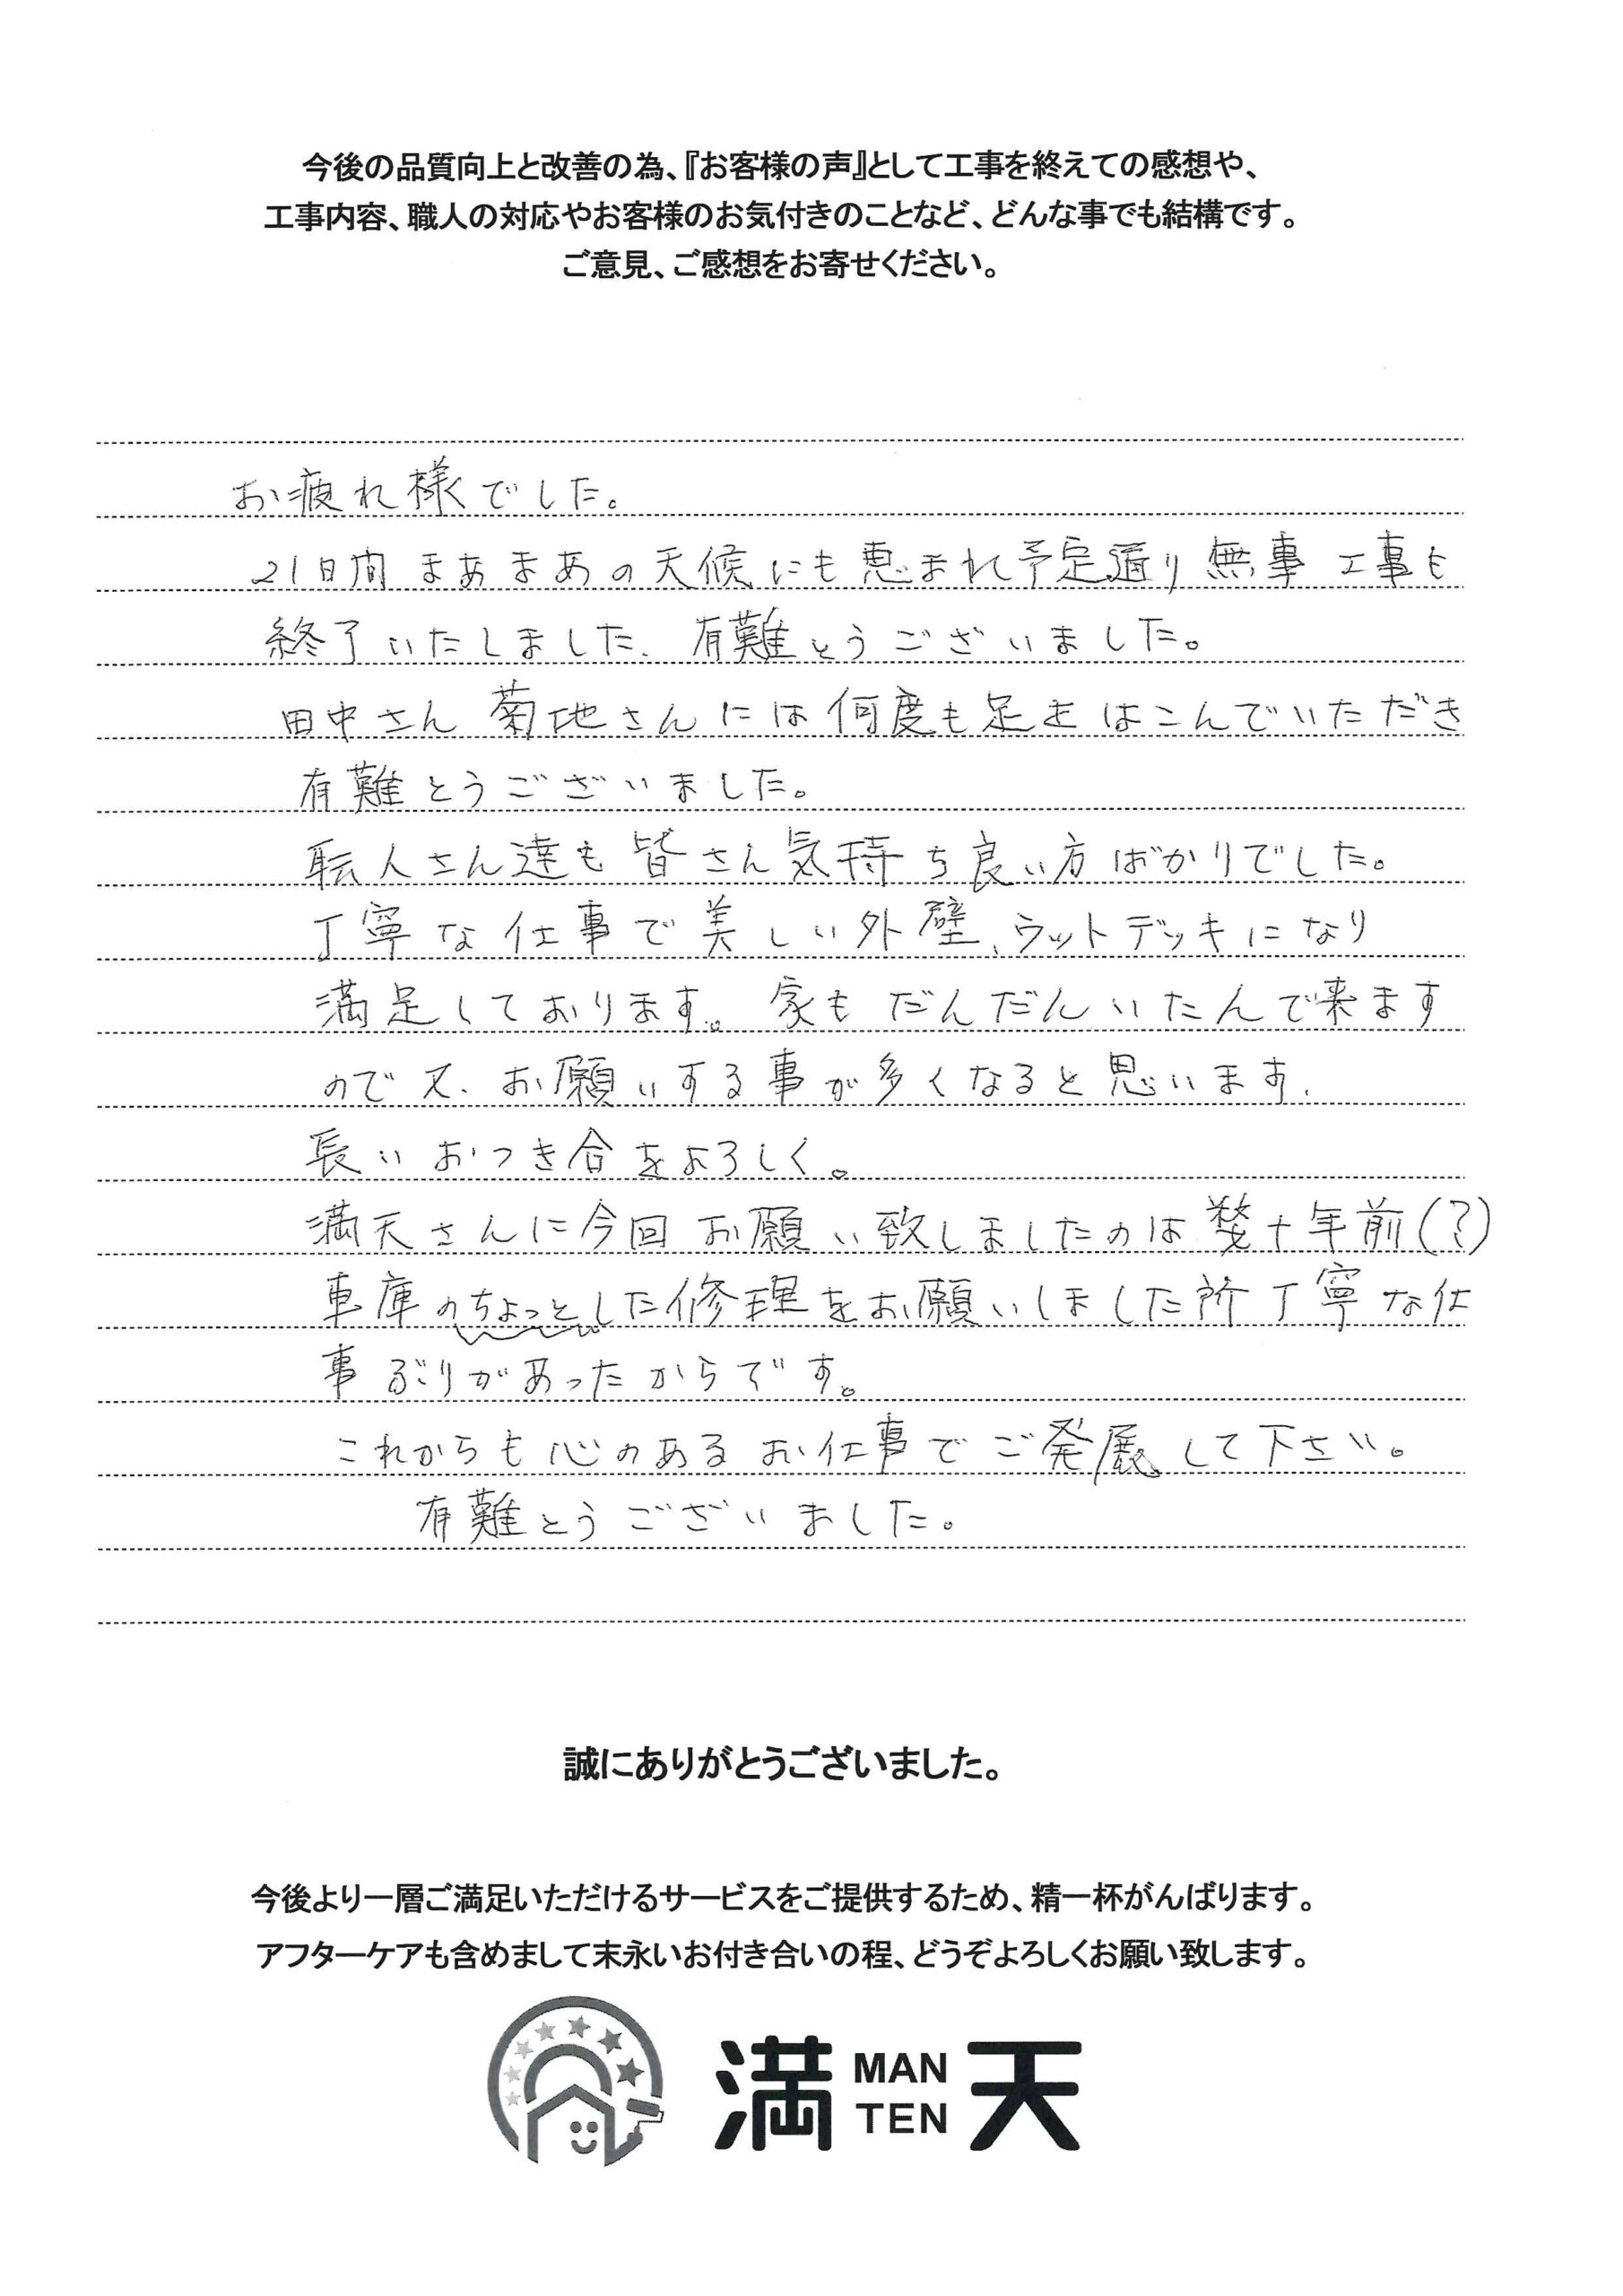 今後の品質向上と改善の為、『お客様の声』として工事を終えての感想や、
工事内容、職人の対応やお客様のお気付きのことなど、どんな事でも結構です。
ご意見、ご感想をお寄せください。
お疲れ様でした。
21日間まあまあの天候にも恵まれ予定通り無事工事も
終了いたしました、有難とうございました。
田中さん菊地さんには何度も足をはこんでいただき
有難とうございました。
転人さん達も皆さん気持ち良い方ばかりでした。
丁寧な仕事で美しい外壁、ウットデッキになり
満足しております。家もだんだんいたんで来ます
ので又、お願いする事が多くなると思います、
長いおつき合をよろしく。
満天さんに今回お願い致しましたのは数十年前(?)
車庫のちょっとした修理をお願いしました所丁寧な仕
事ぶりがあったからです。
これからも心のあるお仕事でご発展して下さい。
有難とうございました。
誠にありがとうございました。
今後より一層ご満足いただけるサービスをご提供するため、精一杯がんばります。
アフターケアも含めまして末永いお付き合いの程、どうぞよろしくお願い致します。
満 MAN TEN 天